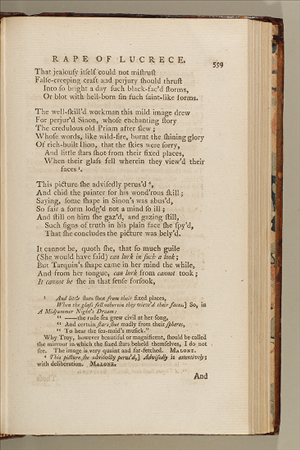 RAPE OF LUCRECE. 559
That jealousy itself could not mistrust
False-creeping craft and perjury should thrust
Into so bright a day such black-fac'd storms,
Or blot with hell-born sin such saint-like forms.
The well-skill'd workman this mild image drew
For perjur'd Sinon, whose enchanting story
The credulous old Priam after slew;
Whose words, like wild-fire, burnt the shining glory
Of rich-built Ilion, that the skies were sorry,
And little stars shot from their fixed places,
When their glass fell wherein they view'd their
faces³.
This picture she advisedly perus'd⁴,
And chid the painter for his wond'rous skill;
Saying, some shape in Sinon's was abus'd,
So fair a form lodg'd not a mind so ill;
And still on him she gaz'd, and gazing still,
Such signs of truth in his plain face she spy'd,
That she concludes the picture was bely'd.
It cannot be, quoth she, that so much guile
(She would have said) can lurk in such a look;
But Tarquin's shape came in her mind the while,
And from her tongue, can lurk from cannot took;
It cannot be she in that sense forsook,
³ And little stars shot from their fixed places,
When their glass fell wherein they view'd their faces.] So, in
A Midsummer Night's Dream:
" —the rude sea grew civil at her song,
" And certain stars shot madly from their spheres,
" To hear the sea-maid's musick."
Why Troy, however beautiful or magnificent, should be called
the mirrour in which the fixed stars beheld themselves, I do not
see. The image is very quaint and far-fetched. MALONE.
⁴ This picture she advisedly perus'd,] Advisedly is attentively;
with deliberation. MALONE.
And